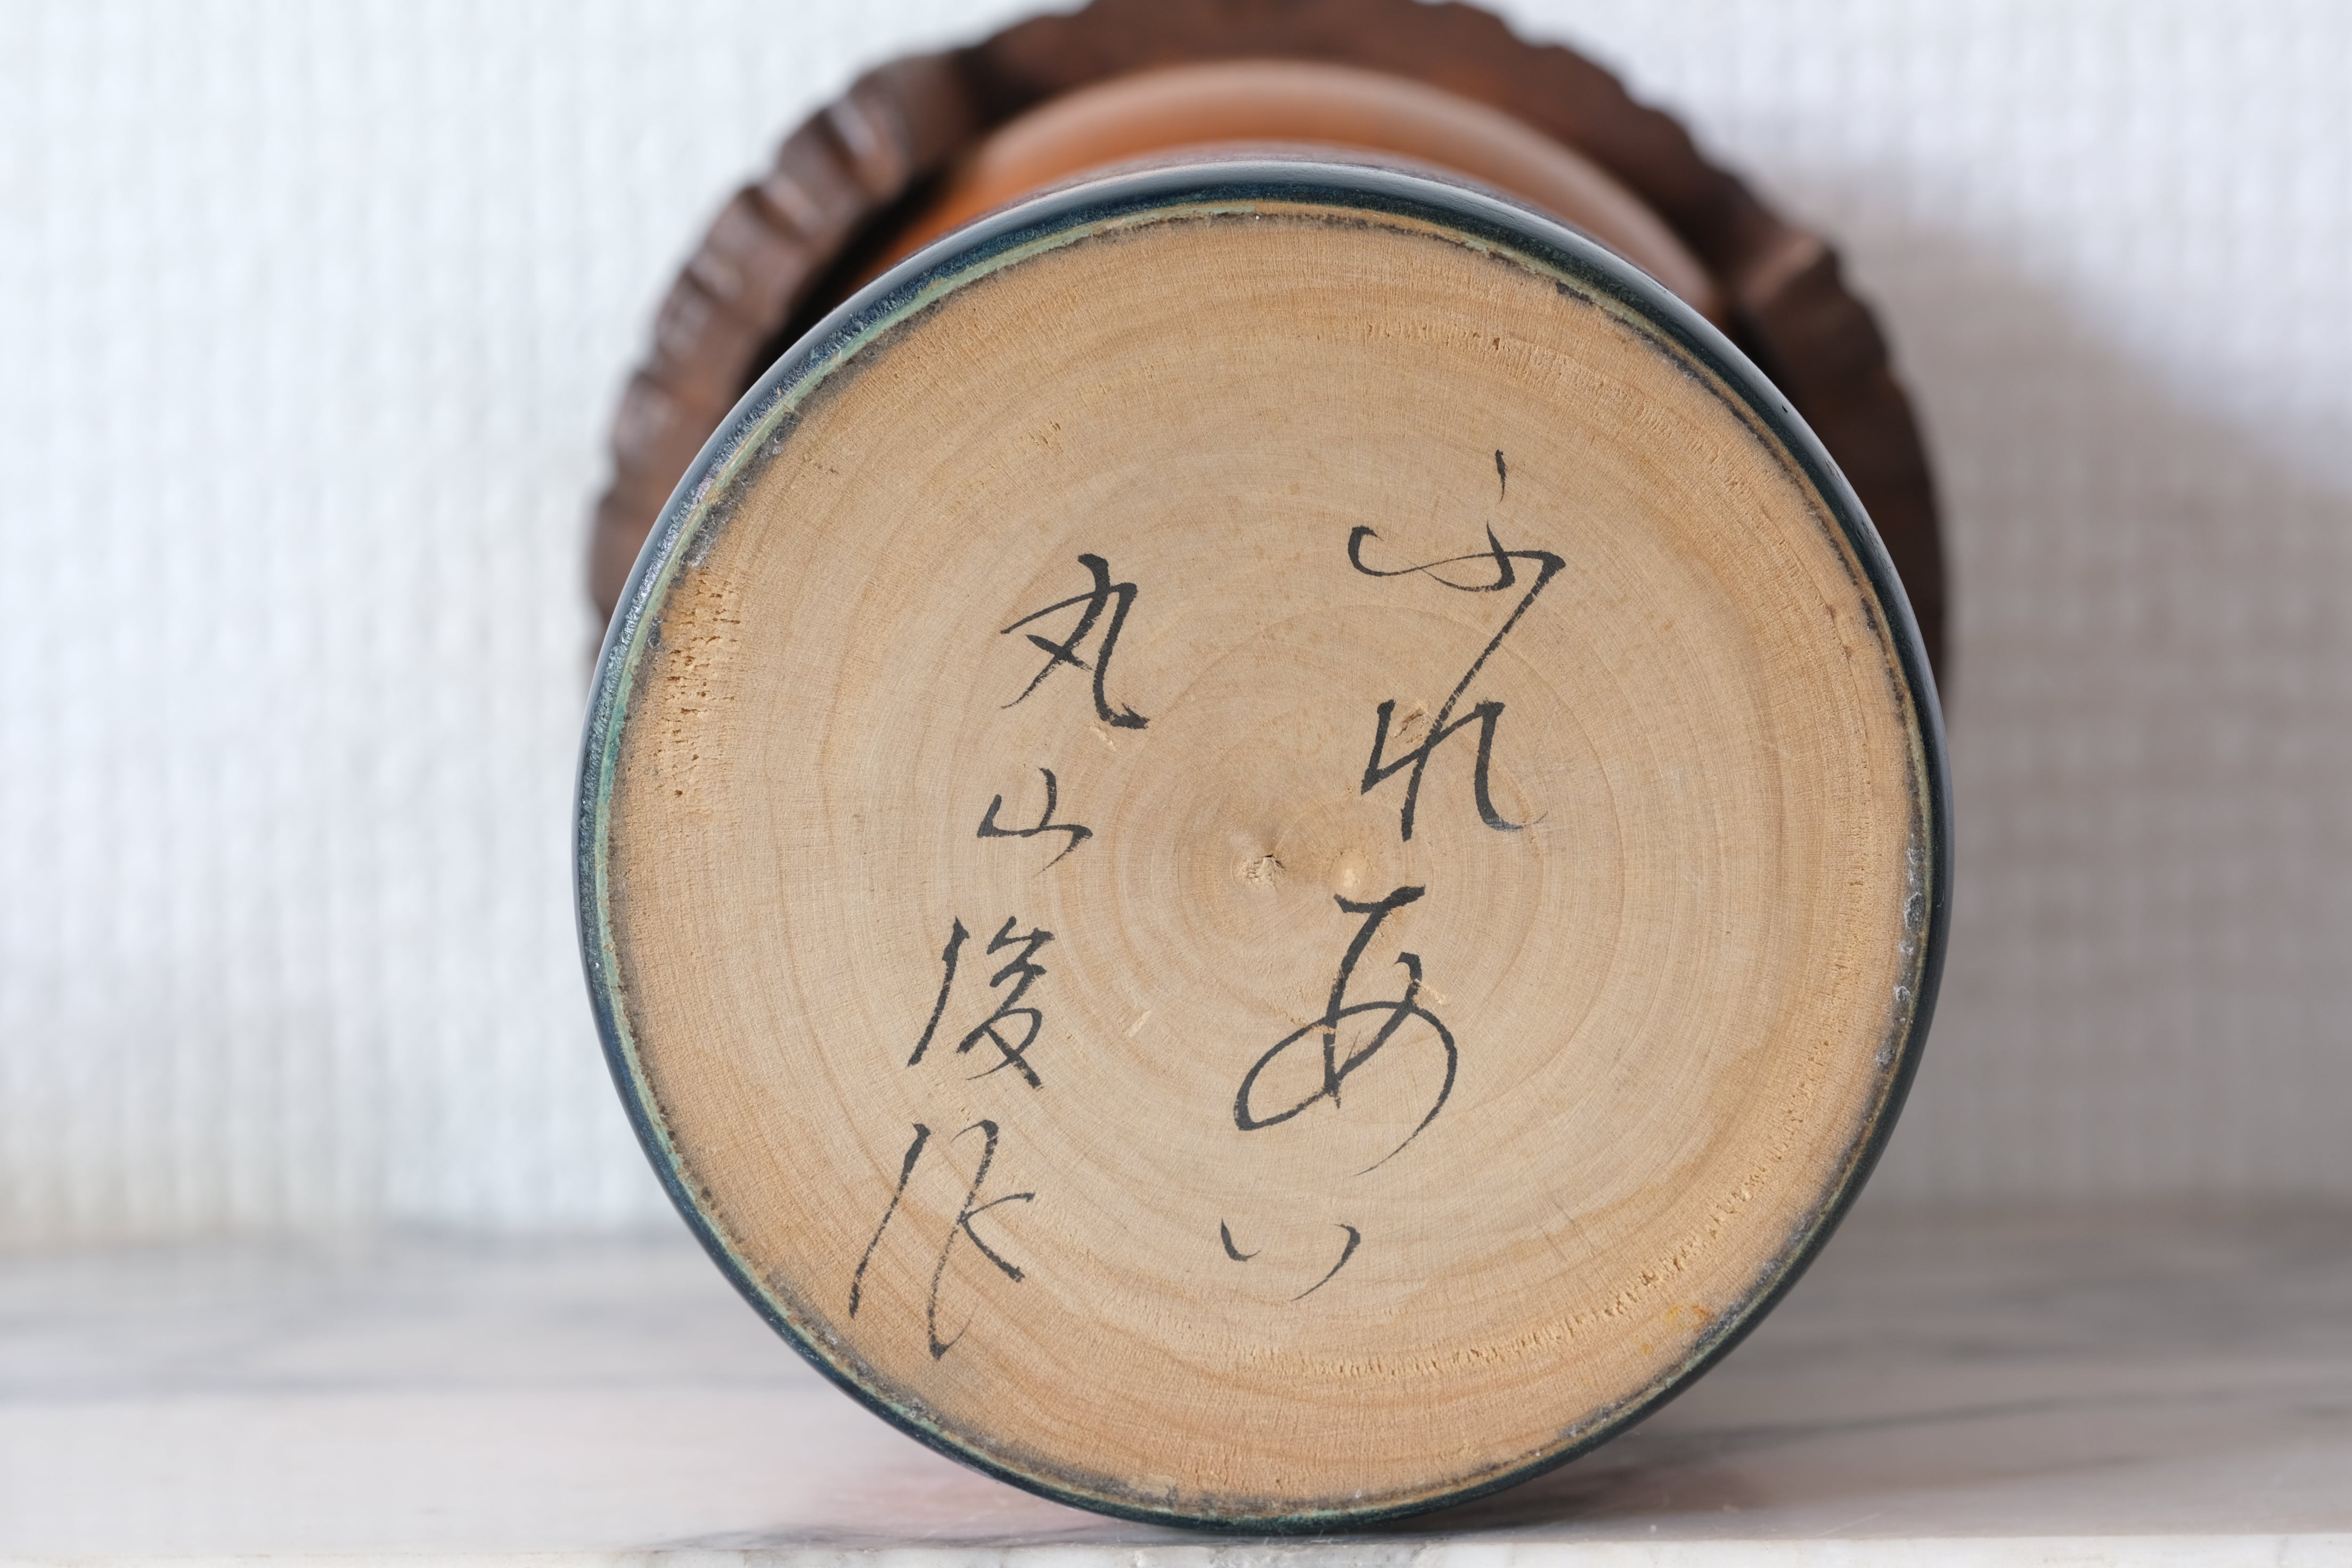 ふれあい
丸山俊作